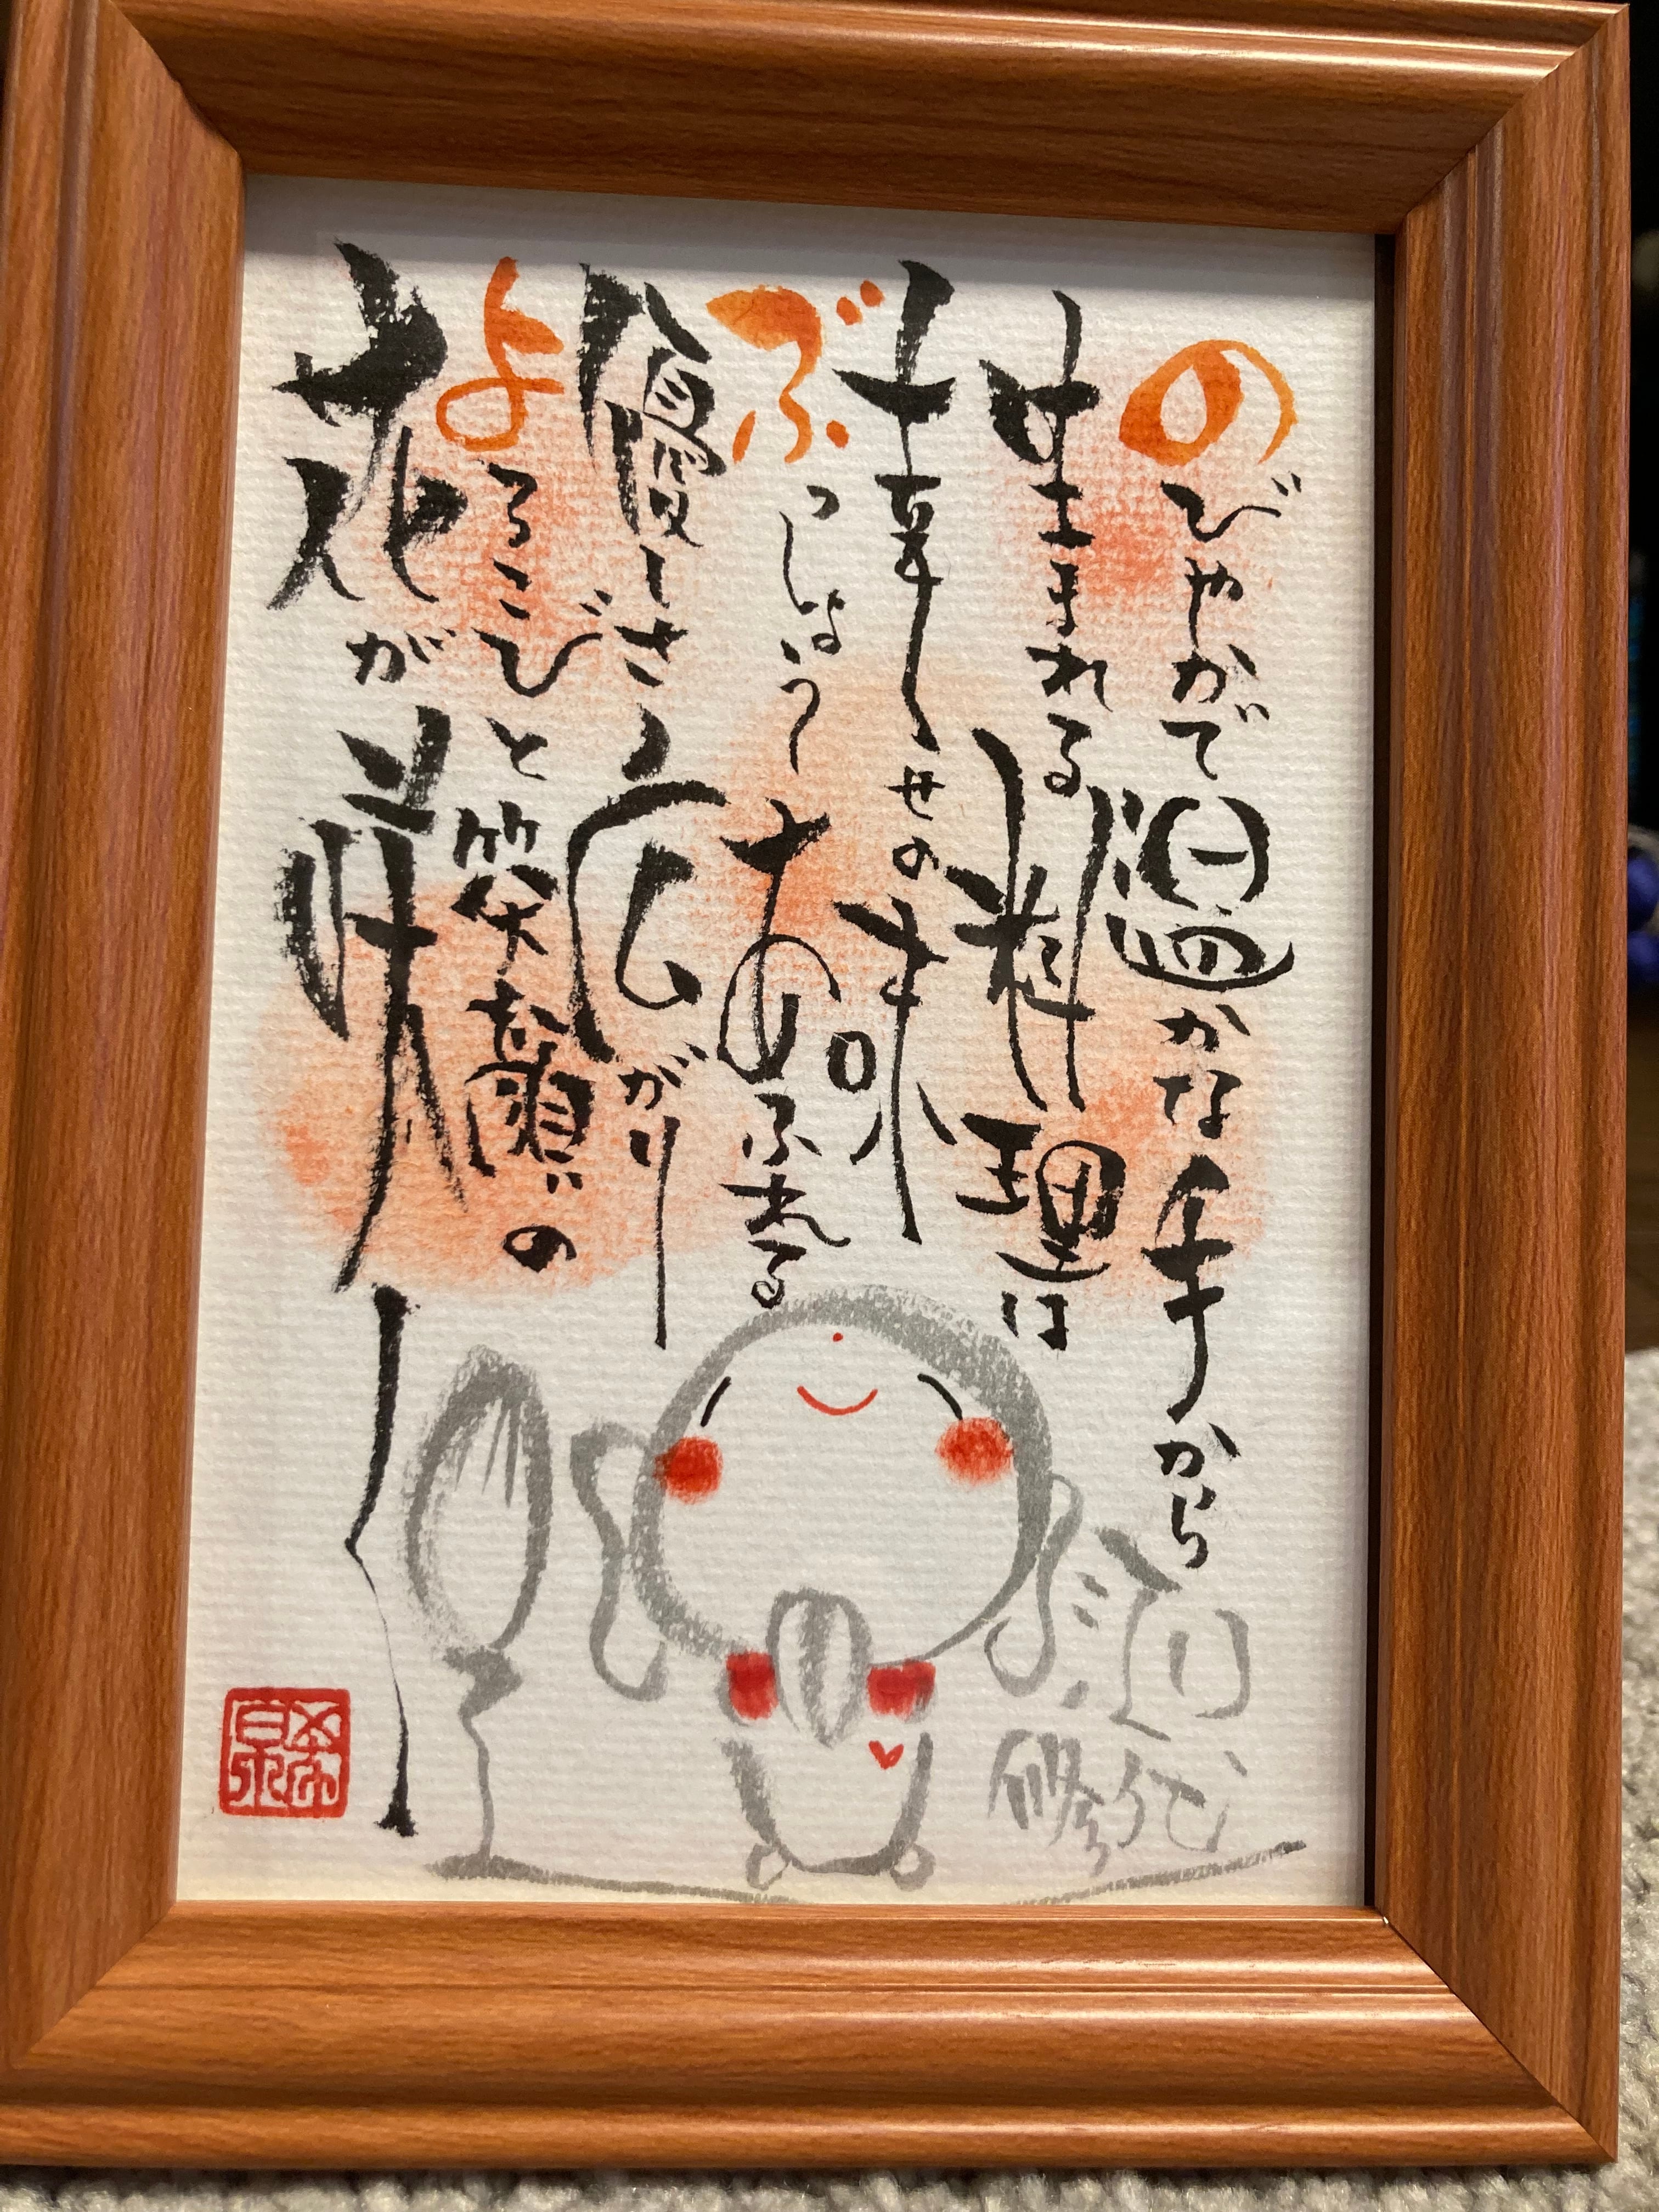 のびやかで温かな手から
生まれる料理は
幸せの味
ぶっしょうあふれる
優しさ広がり
よろこびと笑顔の
花が咲く